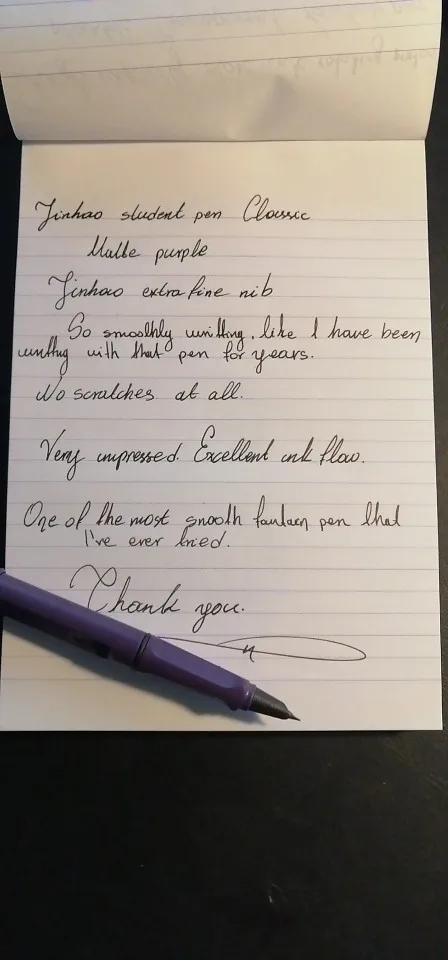 Jinhao student pen Classic
Matte purple
Jinhao extra fine nib
So smoothly writting, like I have been
writting with that pen for years.
No scratches at all.
Very impressed. Excellent ink flow.
One of the most smooth fountain pen that
I've ever tried.
Thank you.